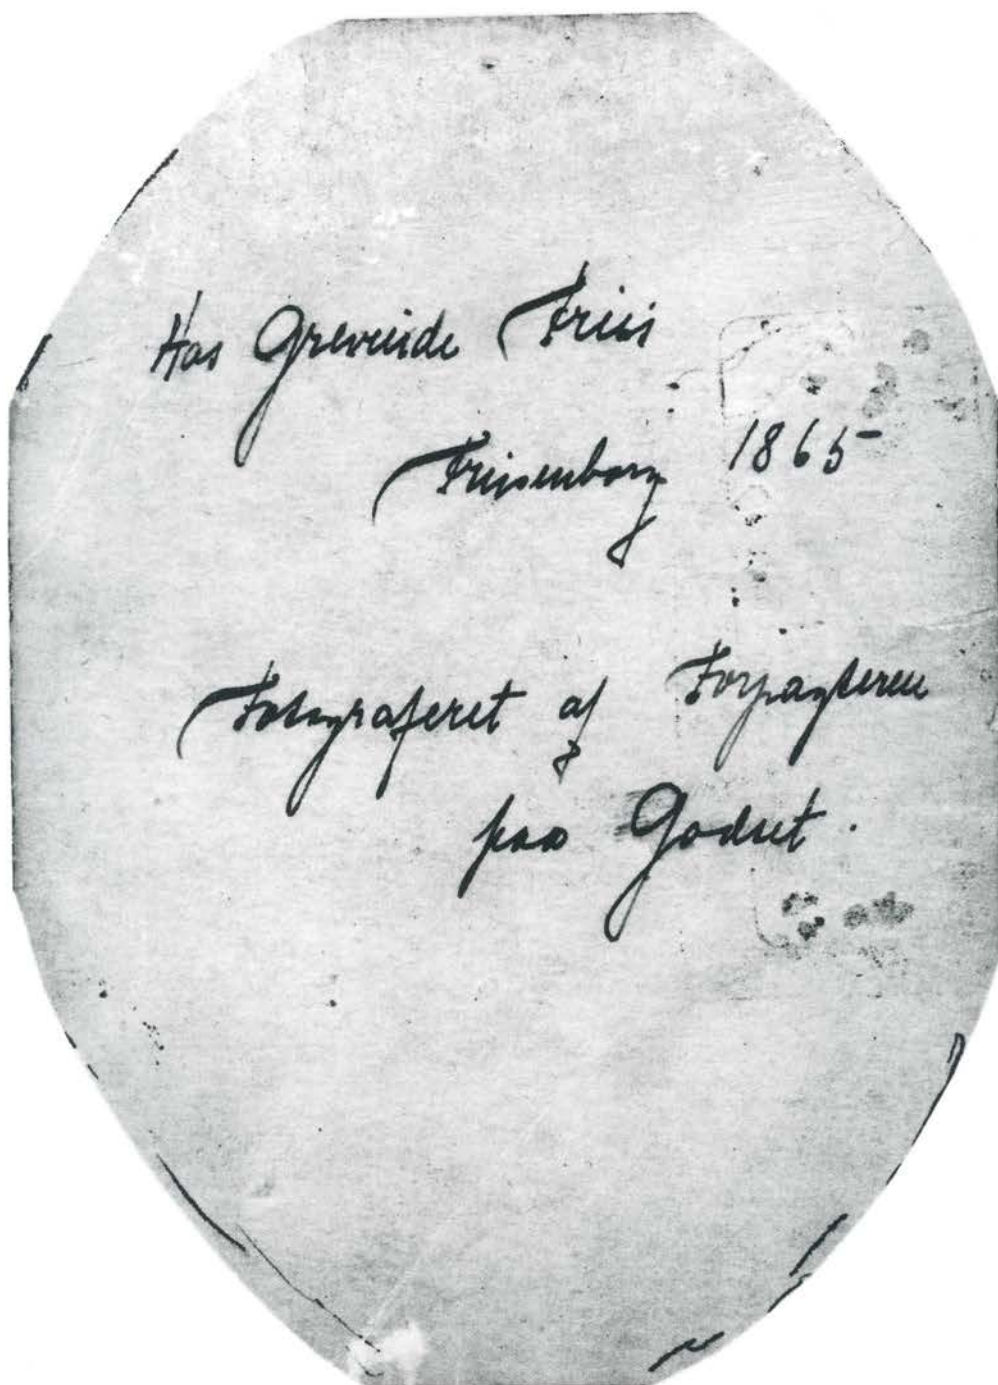 Hos Grevinde Friis
Frisenborg 1865
Fotograferet af Forpagteren
paa Godset.